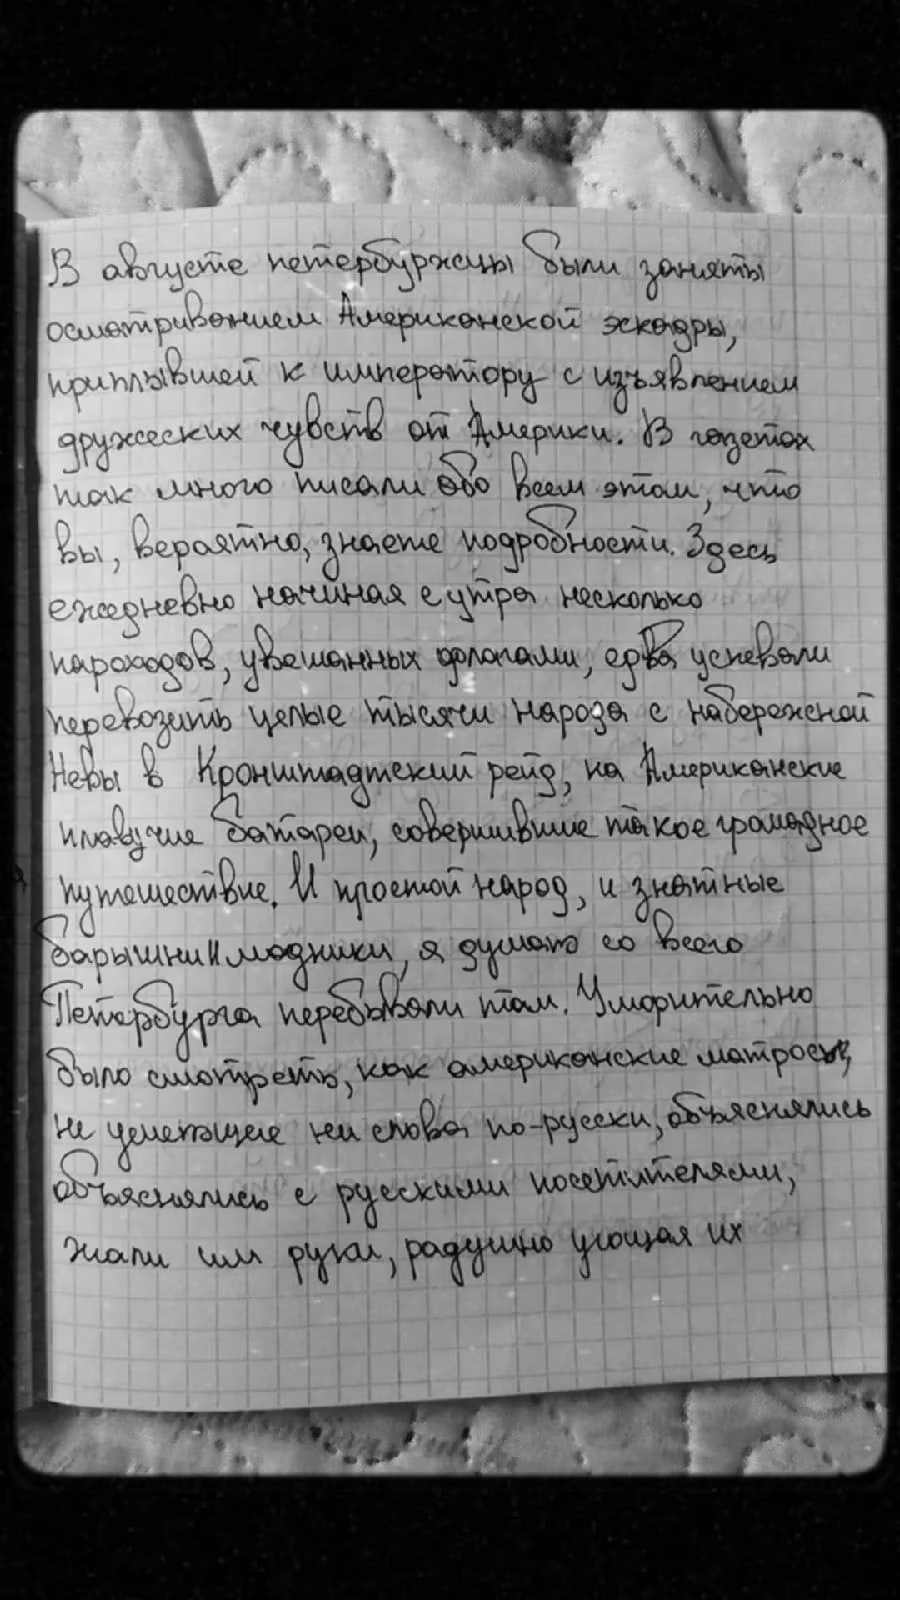 В августе петербуржцы были заняты
осматриванием Американской эскадры,
приплывшей к императору с изъявлением
дружеских чувств от Америки. В газетах
так много писали обо всем этом, что
вы, вероятно, знаете подробности. Здесь
ежедневно начиная с утра несколько
пароходов, увешанных флагами, едва успевали
перевозить целые тысячи народа с набережной
Невы в Кронштадтский рейд, на Американские
плавучие батареи, совершившие такое громадное
путешествие. И простой народ, и знатные
барышни и модники, я думаю со всего
Петербурга перебывали там. Уморительно
было смотреть, как американские матросы,
не умеющие ни слова по-русски, объяснялись
объяснялись с русскими посетителями,
жали им руки, радушно угощая их